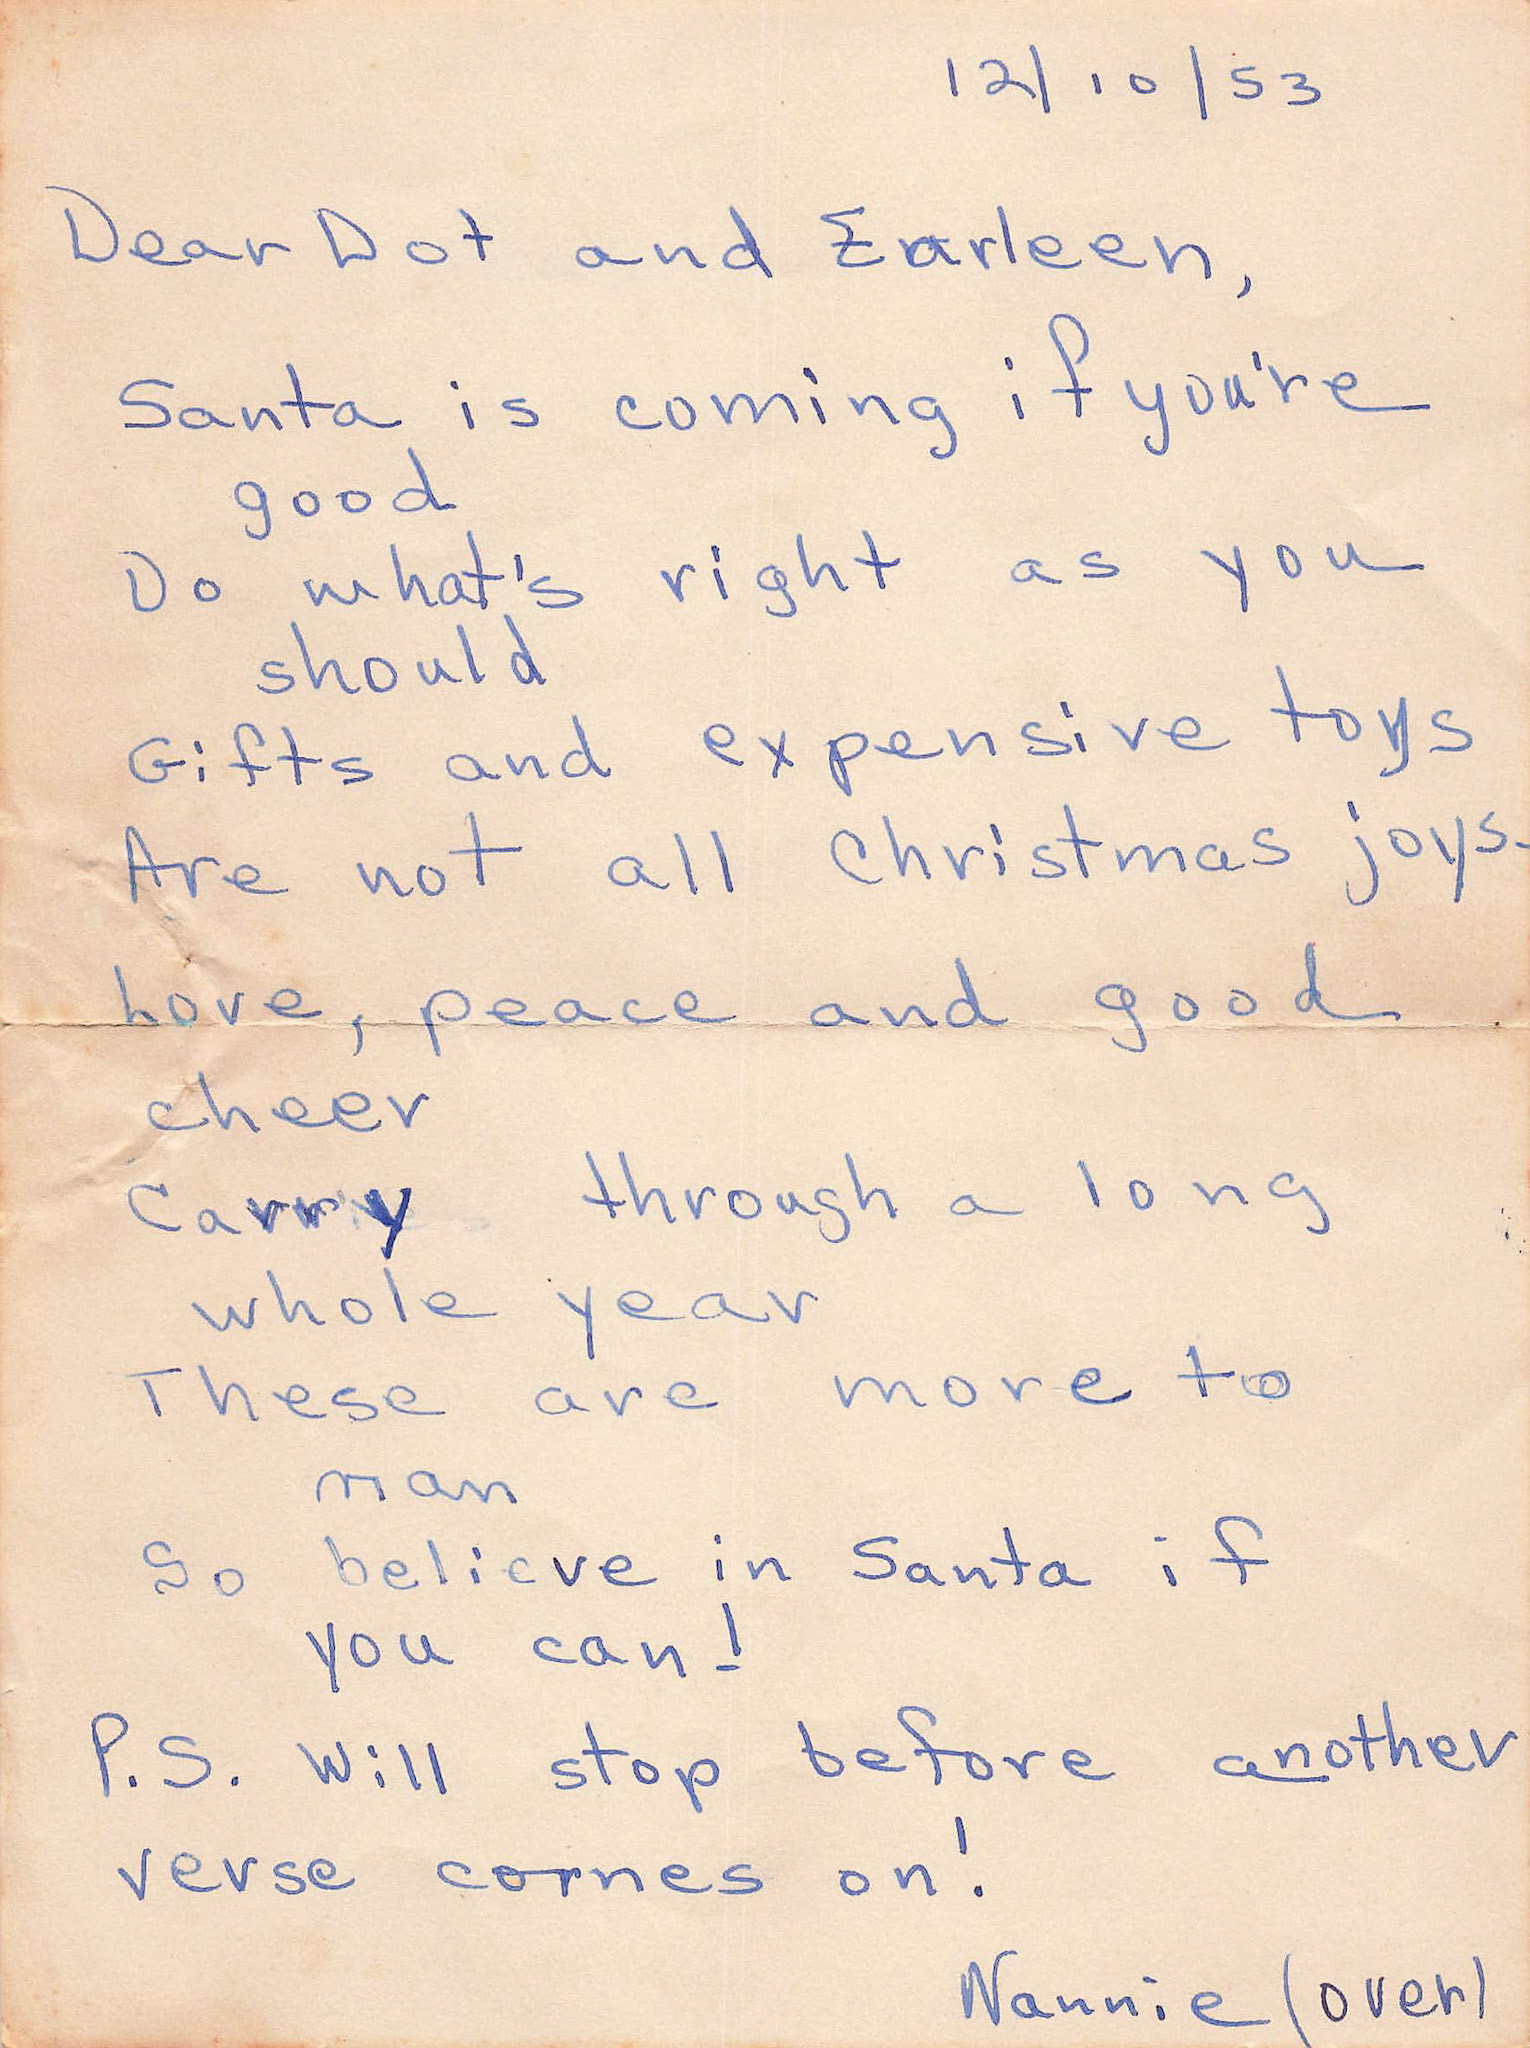 12/10/53
Dear Dot and Earleen,
Santa is coming if you're
good
Do what's right as you
should
Gifts and expensive toys
Are not all Christmas joys.
Love, peace and good
cheer
Carry through a long
whole year
These are more to
man
So believe in Santa if
you can!
P.S. Will stop before another
verse comes on!
Nannie (over)